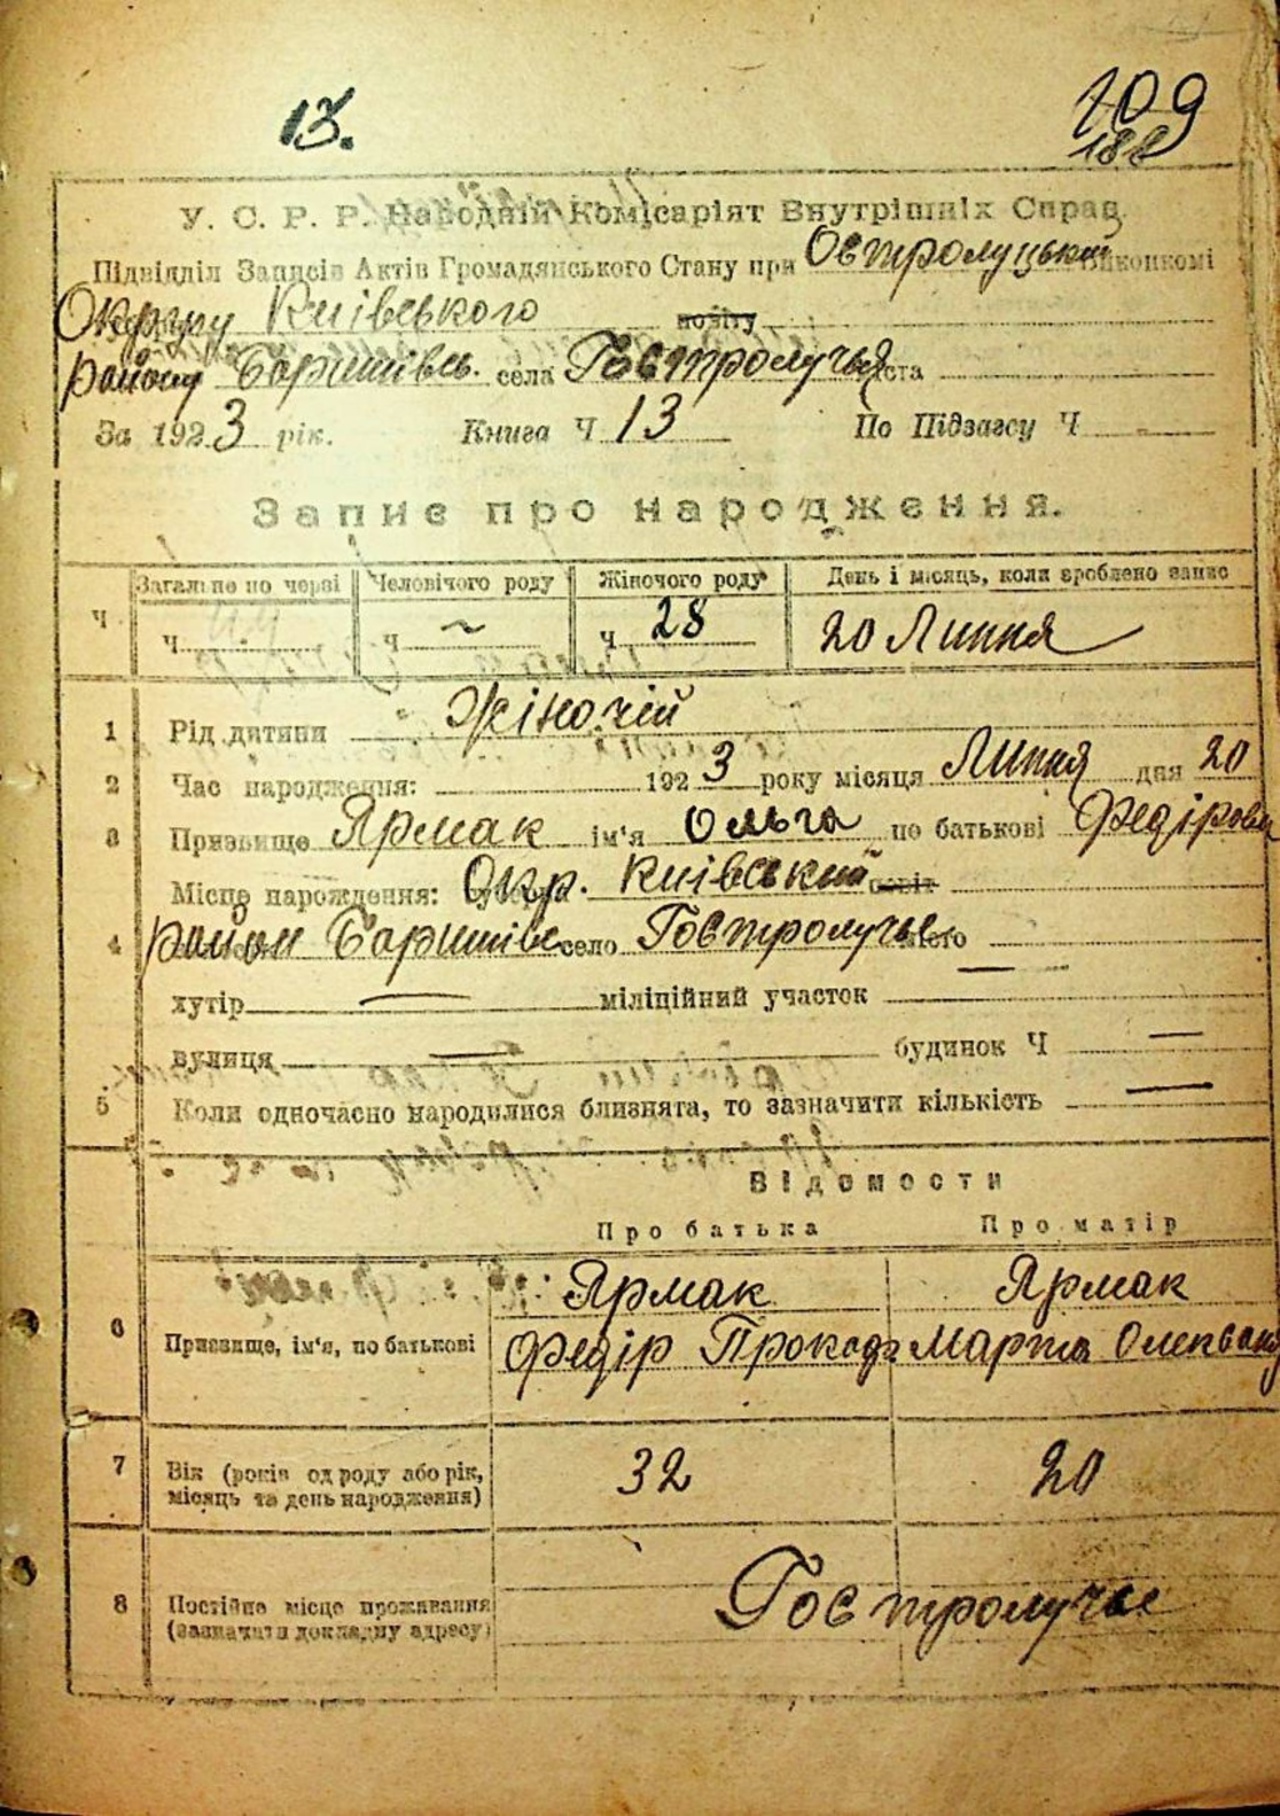 13.
109
188
У. С. Р. Р. Народній Комісаріят Внутрішніх Справ
Підвідділ Записів Актів Громадянського Стану при Остролуцькій Виконкомі
Округу Київського повіту
району Баришівсь. села Гостролуччя міста
За 1923 рік. Книга Ч 13 По Підзагсу Ч
Запис про народження.
Загальне по черзі Человічого роду Жіночого роду День і місяць, коли зроблено запис
Ч Ч Ч Ч 28 20 Липня
1 Рід дитини Жіночій
2 Час народження: 1923 року місяця Липня дня 20
3 Призвище Ярмак ім'я Ольга по батькові Федірови
Місце нарождення: Окр. Київський повіт
4 район Баришівс село Гостролучье місто
хутір — міліційний участок —
вулиця — будинок Ч —
5 Коли одночасно народилися близнята, то зазначити кількість —
Відомости
Про батька Про матір
Ярмак Ярмак
6 Призвище, ім'я, по батькові Федір Прокоф Марта Олександ
7 Вік (років од роду або рік, 32 20
місяць та день народження)
8 Постійне місце проживання Гостролучье
(зазначити докладну адресу)